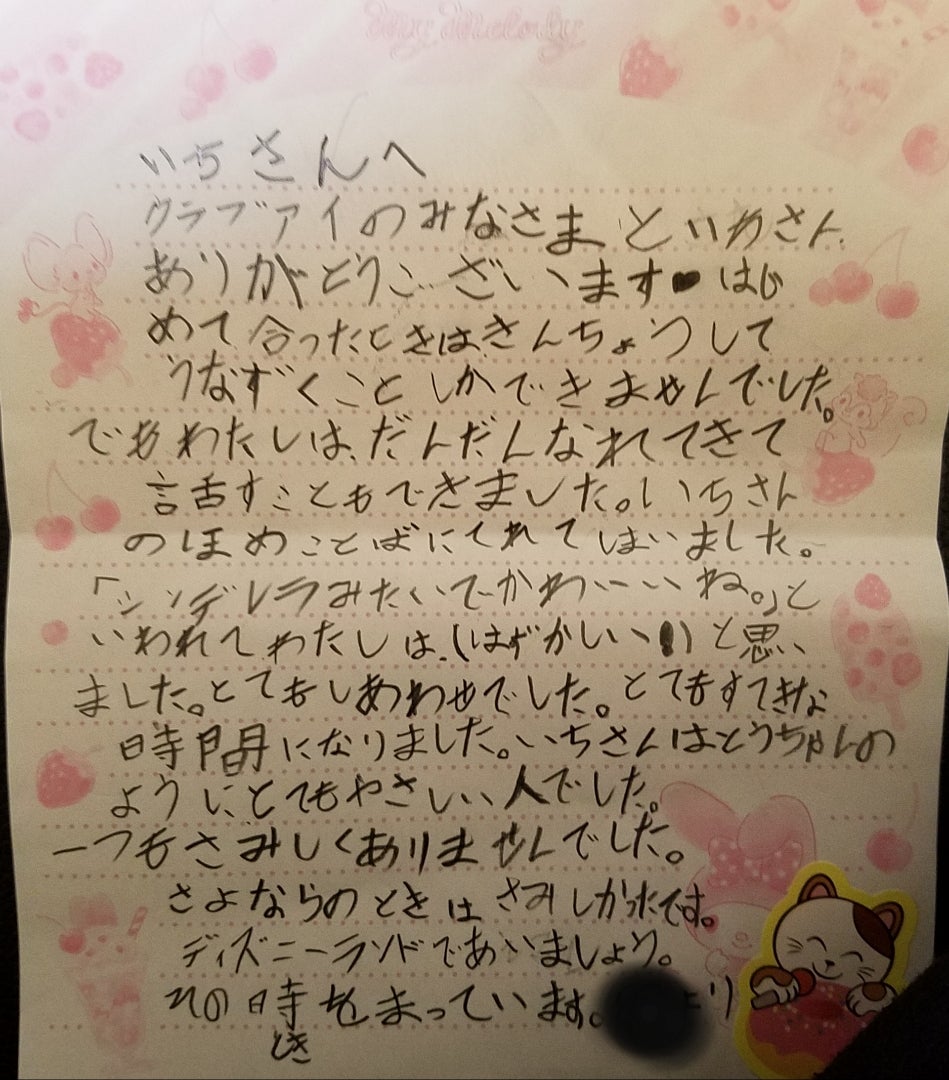 My Melody
いちさんへ
クラブアイのみなさまといわさん
ありがとうございます♥はじ
めて合ったときはきんちょうして
うなずくことしかできませんでした。
でもわたしは、だんだんなれてきて
話すこともできました。いちさん
のほめことばにてれてしまいました。
「シンデレラみたいでかわいーいね。」と
いわれてわたしは、(はずかしい、)と思い
ました。とてもしあわせでした。とてもすてきな
時間になりました。いちさんはとうちゃんの
ようにとてもやさしい人でした。
一つもさみしくありませんでした。
さよならのときはさみしかったです。
ディズニーランドであいましょう。
その時をまっています。より
とき